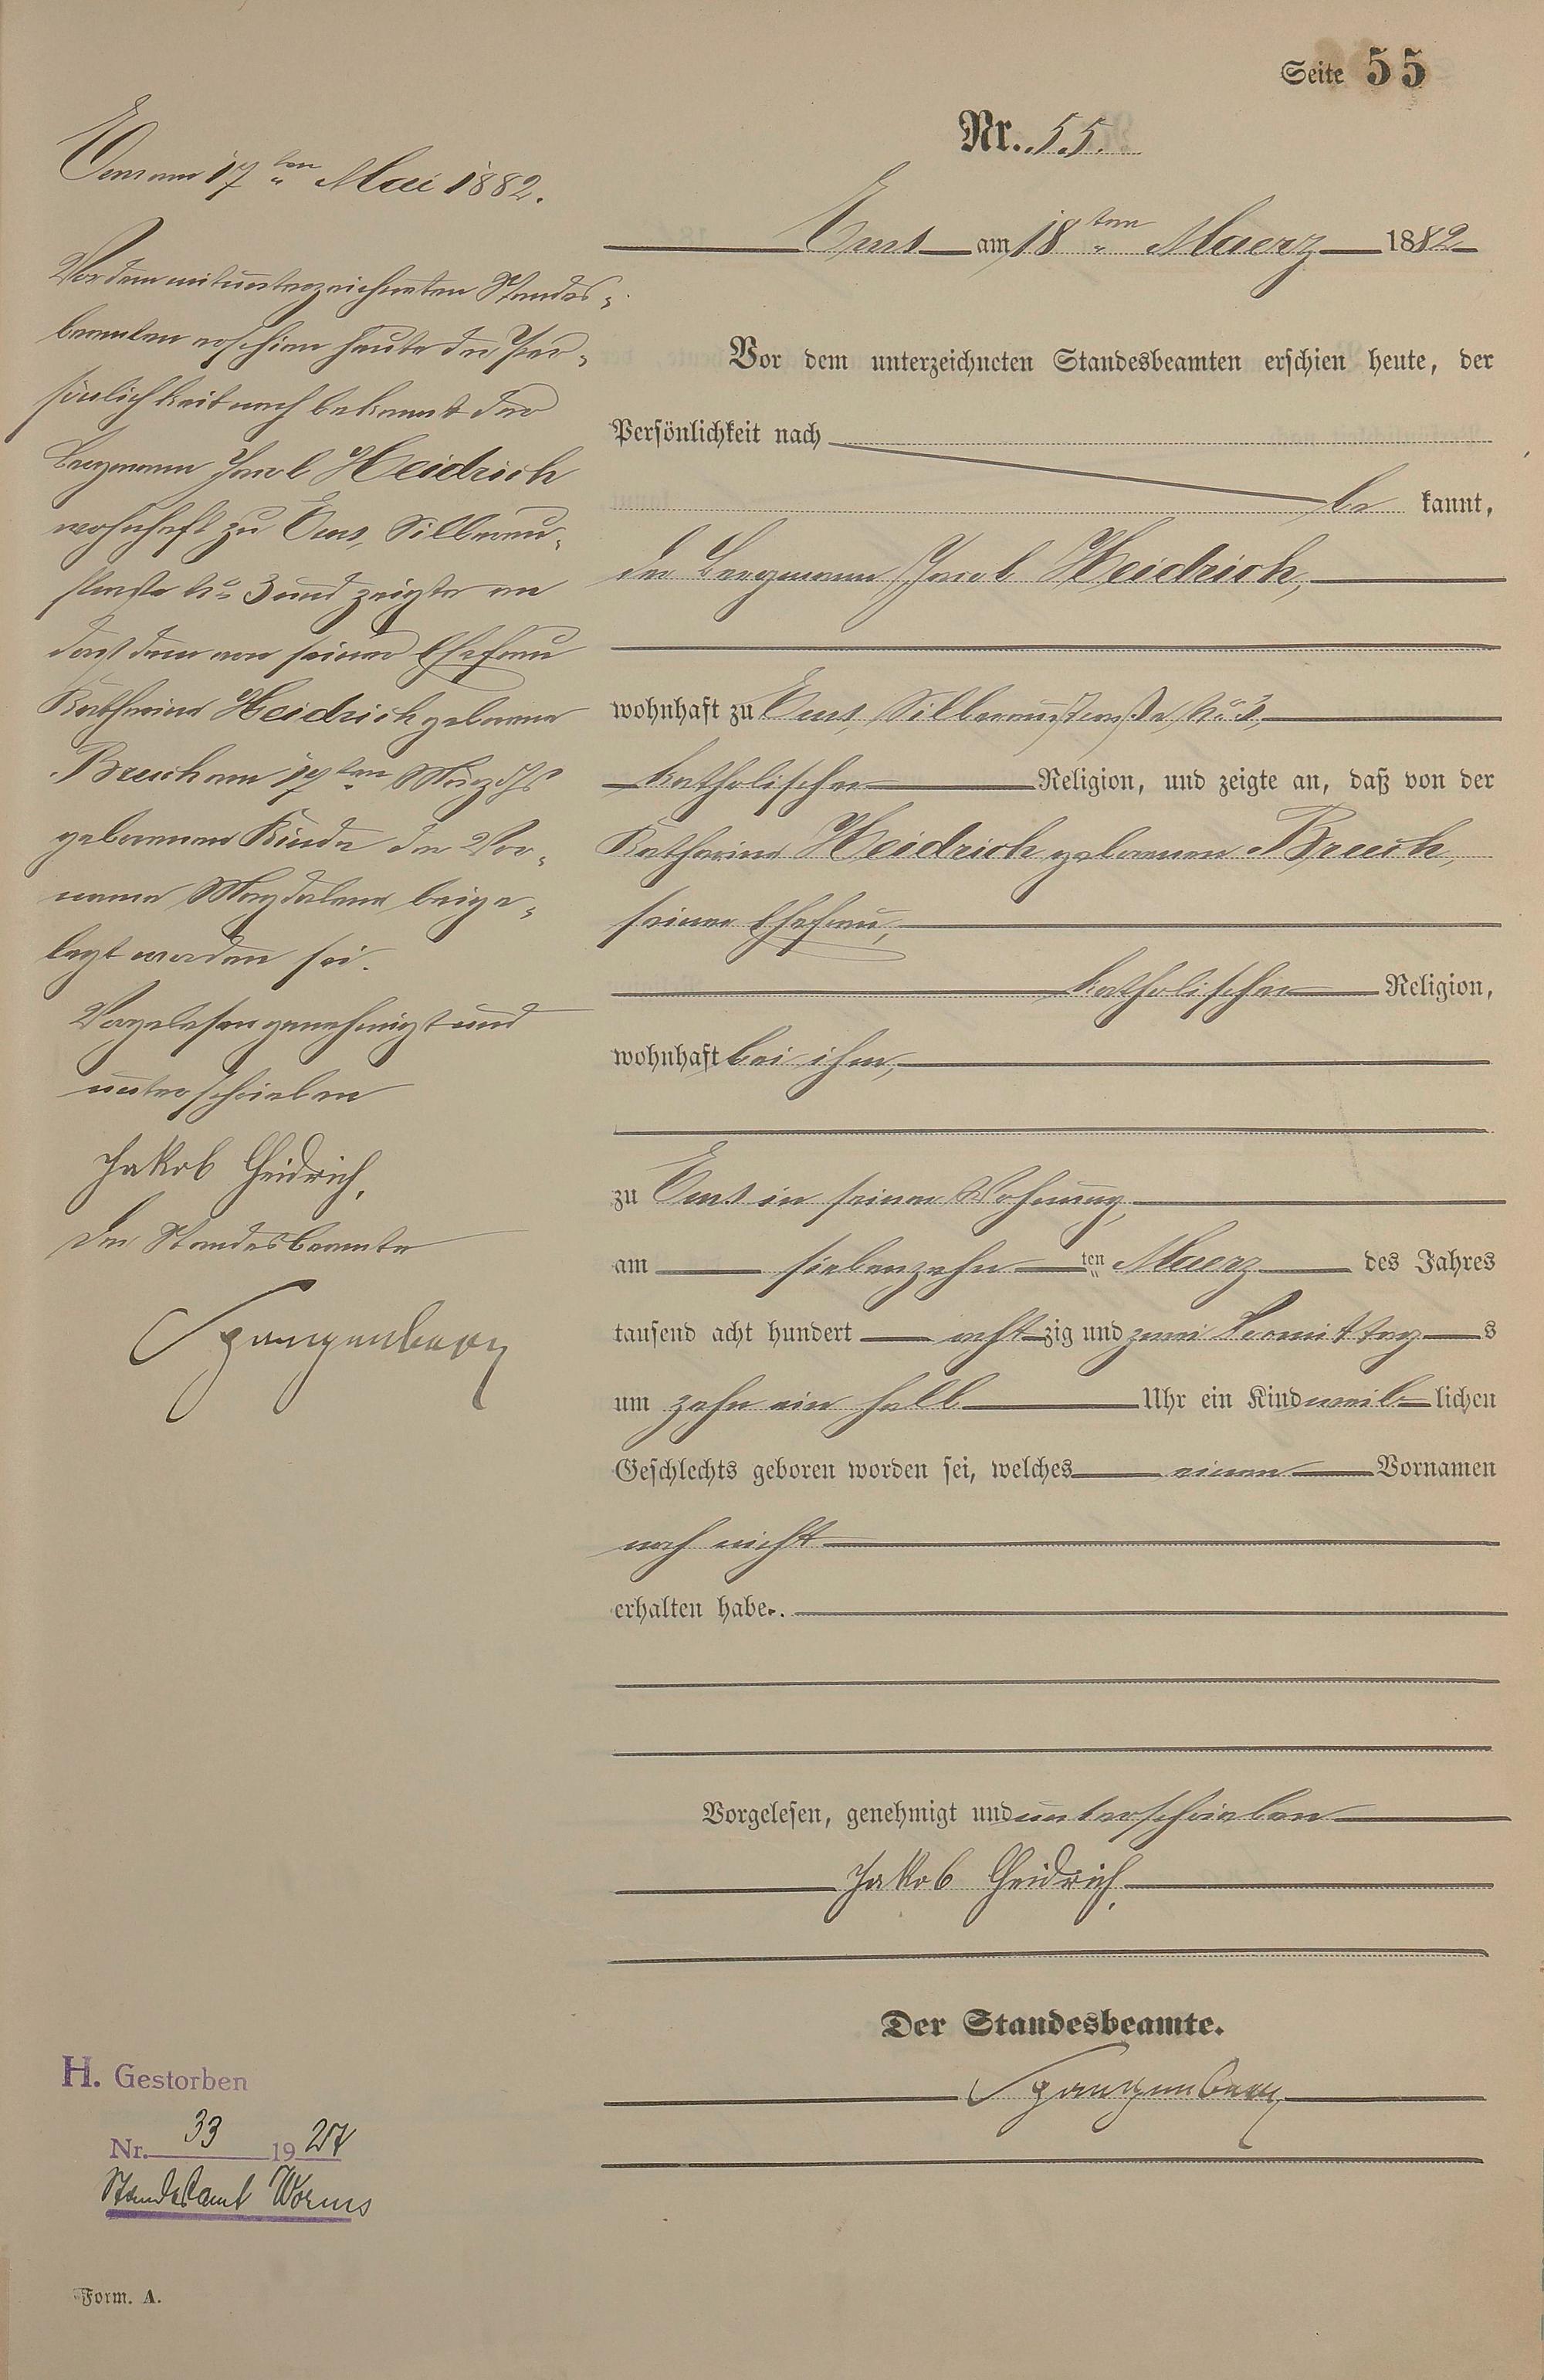 Seite 55
Nr. 55.
Ems am 18ten Maerz 1882
Vor dem unterzeichneten Standesbeamten erschien heute, der
Persönlichkeit nach
be kannt,
der Bergmann Jacob Heidrich,
wohnhaft zu Ems, Silberaustraße No 3,
katholischer Religion, und zeigte an, daß von der
Katharina Heidrich geborenen Breuch,
seiner Ehefrau,
katholischer Religion,
wohnhaft bei ihm,
zu Ems in seiner Wohnung,
am siebenzehn ten Maerz des Jahres
tausend acht hundert acht zig und zwei Vormittag s
um zehn ein halb Uhr ein Kind weib lichen
Geschlechts geboren worden sei, welches einen Vornamen
noch nicht
erhalten habe.
Vorgelesen, genehmigt und unterschrieben
Jakob Heidrich,
Der Standesbeamte.
Spangenberg
Ems am 17ten Mai 1882.
Vor dem mitunterzeichneten Standes-
beamten erschien heute der Per-
sönlichkeit nach bekannt der
Bergmann Jacob Heidrich
wohnhaft zu Ems, Silberau-
straße No 3 und zeigte an
daß dem von seiner Ehefrau
Katharina Heidrich geborene
Breuch am 17ten März djs
geborenen Kinde der Vor-
name Magdalena beige-
legt worden sei.
Vorgelesen genehmigt und
unterschrieben
Jakob Heidrich,
Der Standesbeamte
Spangenberg
H. Gestorben
Nr. 33 19
Standesamt Worms
Form. A.